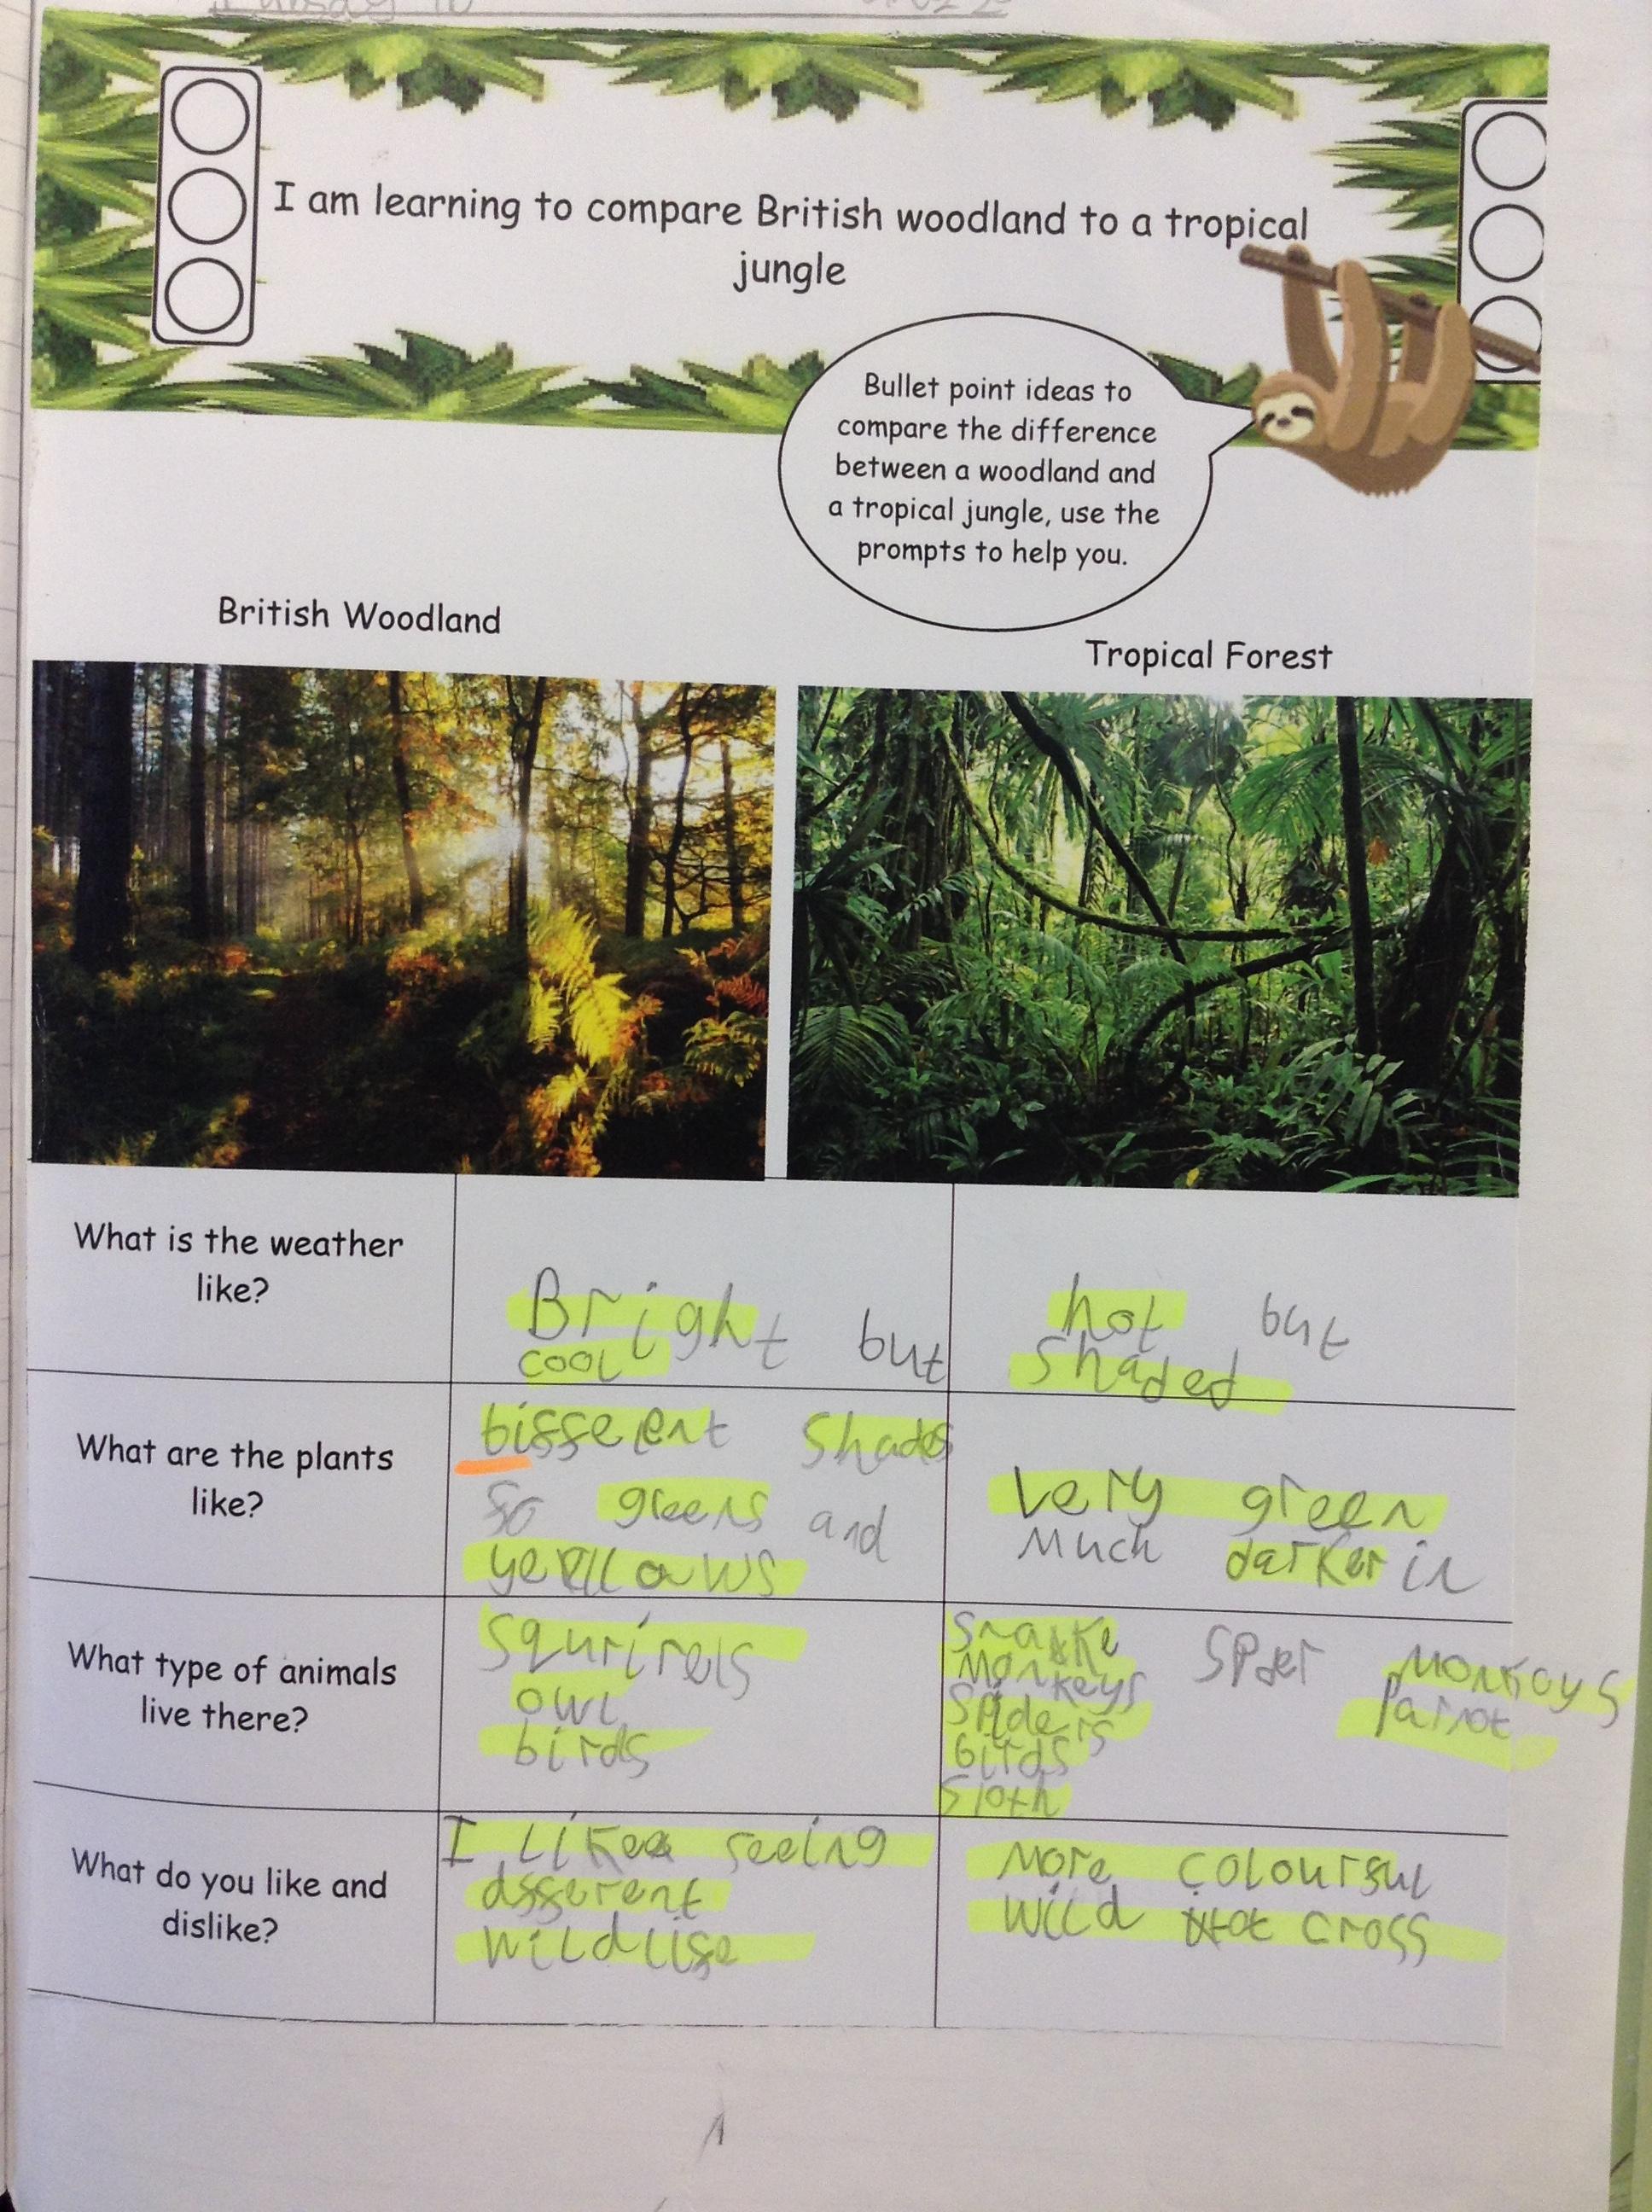 I am learning to compare British woodland to a tropical
jungle
Bullet point ideas to
compare the difference
between a woodland and
a tropical jungle, use the
prompts to help you.
British Woodland
Tropical Forest
What is the weather
like?
Bright but
cool
hot but
shaded
What are the plants
like?
bifferent shades
so greens and
yellows
very green
much darker in
What type of animals
live there?
squrirels
owl
birds
snake
monkeys
spiders
birds
sloth
spider monkeys
parrot
What do you like and
dislike?
I like seeing
dfferent
wildlife
more colourful
wild cross